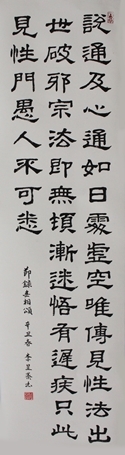 說通及心通如日處虛空唯傳見性法出
世破邪宗法即無頓漸迷悟有遲疾只此
見性門愚人不可悉
節錄無相頌 辛丑春 李